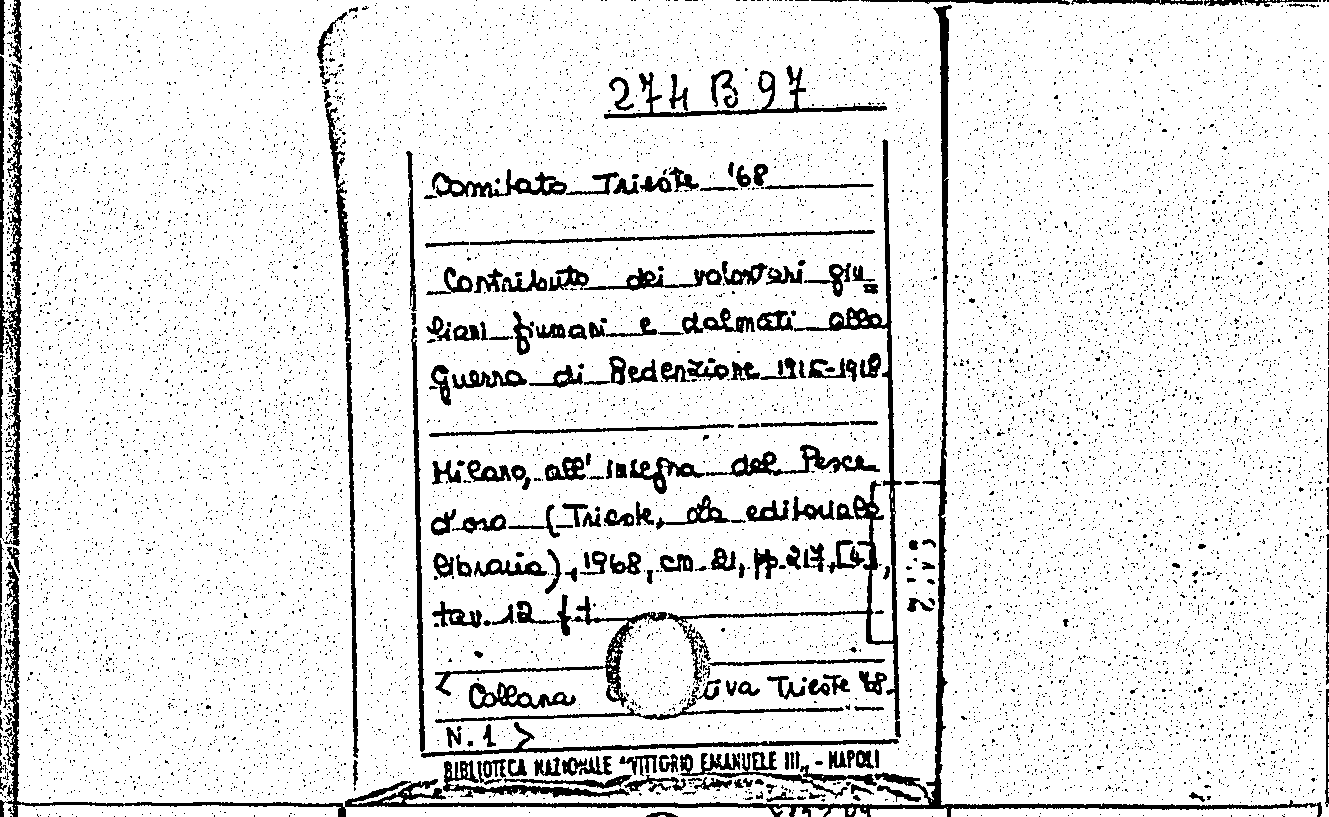 274 B 97
Comitato Trieste '68
Contributo dei volontari giu=
liani fiumani e dalmati alla
Guerra di Redenzione 1915-1918.
Milano, all'insegna del Pesce
d'oro (Trieste, la editoriale
libraria), 1968, cm. 21, pp. 217, [4],
tav. 12 f.t.
< Collana va Trieste '68.
N. 1 >
BIBLIOTECA NAZIONALE "VITTORIO EMANUELE III" - NAPOLI